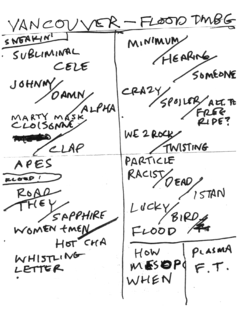 VANCOUVER - FLOOD TMBG
SNEAKIN!
SUBLIMINAL
CELE
JOHNNY
DAMN
ALPHA
MARTY MASK
CLOISONNE
CLAP
APES
FLOOD!
ROAD
THEY
SAPPHIRE
WOMEN + MEN
HOT CHA
WHISTLING
LETTER
MINIMUM
HEARING
SOMEONE
CRAZY
SPOILER / ALL TO
FREE
RIDE?
WE 2 ROCK
TWISTING
PARTICLE
RACIST
DEAD
ISTAN
LUCKY
BIRD
FLOOD
HOW
MESOPO
WHEN
PLASMA
F. T.